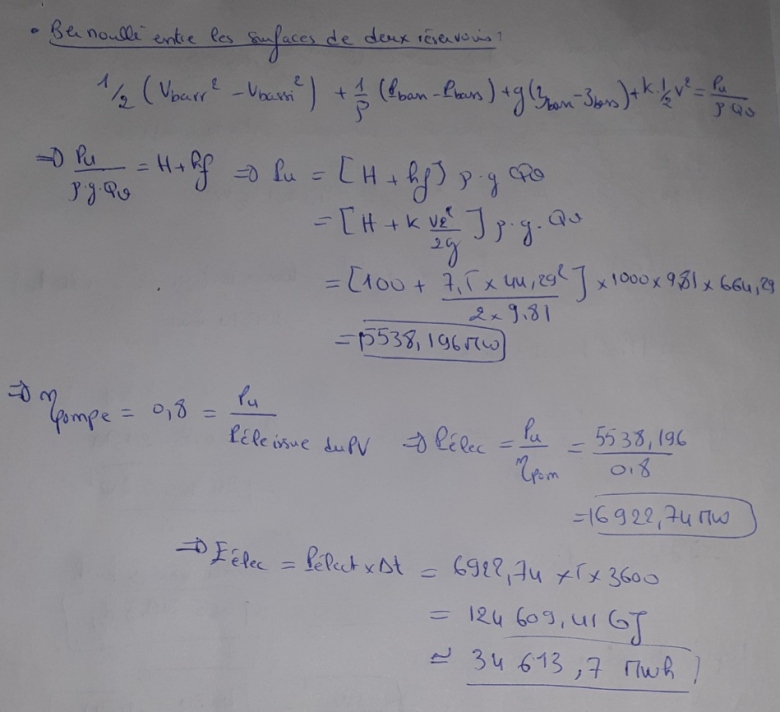 • Bernoulli entre les surfaces de deux réservoirs :
1/2 (Vbarr² - Vbassi²) + 1/ρ (Pbarr - Pbass) + g(zbarr - zbass) + k.1/2 v² = Pu/ρQv
=> Pu/ρ.g.Qv = H + hf => Pu = [H + hf] ρ.g Qv
= [H + k ve²/2g] ρ.g.Qv
= [100 + 7,5 x 44,29²/2 x 9.81] x 1000 x 9,81 x 664,29
= 5538,196 MW
=> ηpompe = 0,8 = Pu/Pélec issue du PV => Pélec = Pu/ηpom = 5538,196/0.8
= 6922,74 MW
=> Eélec = Pélect x Δt = 6922,74 x 5 x 3600
= 124 609,41 GJ
≃ 34 613,7 MWh